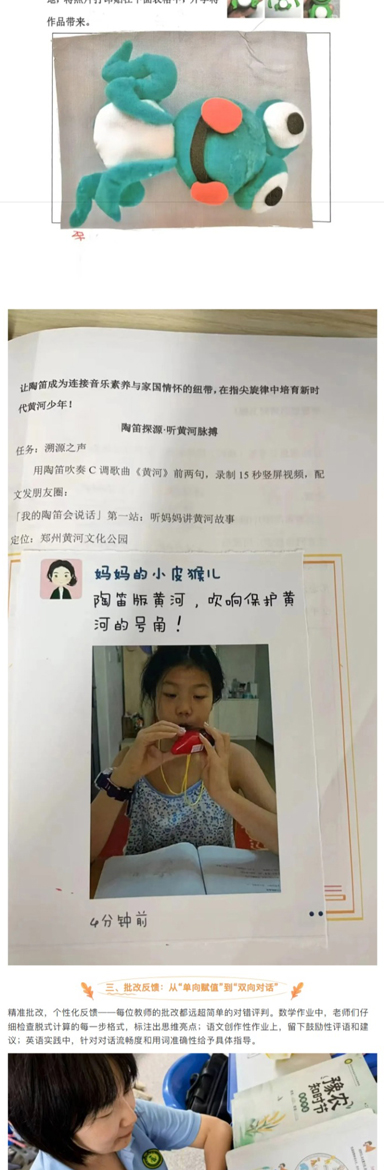 作品带来。
让陶笛成为连接音乐素养与家国情怀的纽带,在指尖旋律中培育新时
代黄河少年!
陶笛探源·听黄河脉搏
任务:溯源之声
用陶笛吹奏 C 调歌曲《黄河》前两句,录制 15 秒竖屏视频,配
文发朋友圈:
「我的陶笛会说话」第一站:听妈妈讲黄河故事
定位:郑州黄河文化公园
妈妈的小皮猴儿
陶笛版黄河,吹响保护黄
河的号角!
4分钟前
三、批改反馈:从“单向赋值”到“双向对话”
精准批改,个性化反馈——每位教师的批改都远超简单的对错评判。数学作业中,老师们仔
细检查脱式计算的每一步格式,标注出思维亮点;语文创作性作业上,留下鼓励性评语和建
议;英语实践中,针对对话流畅度和用词准确性给予具体指导。
豫农
知时节